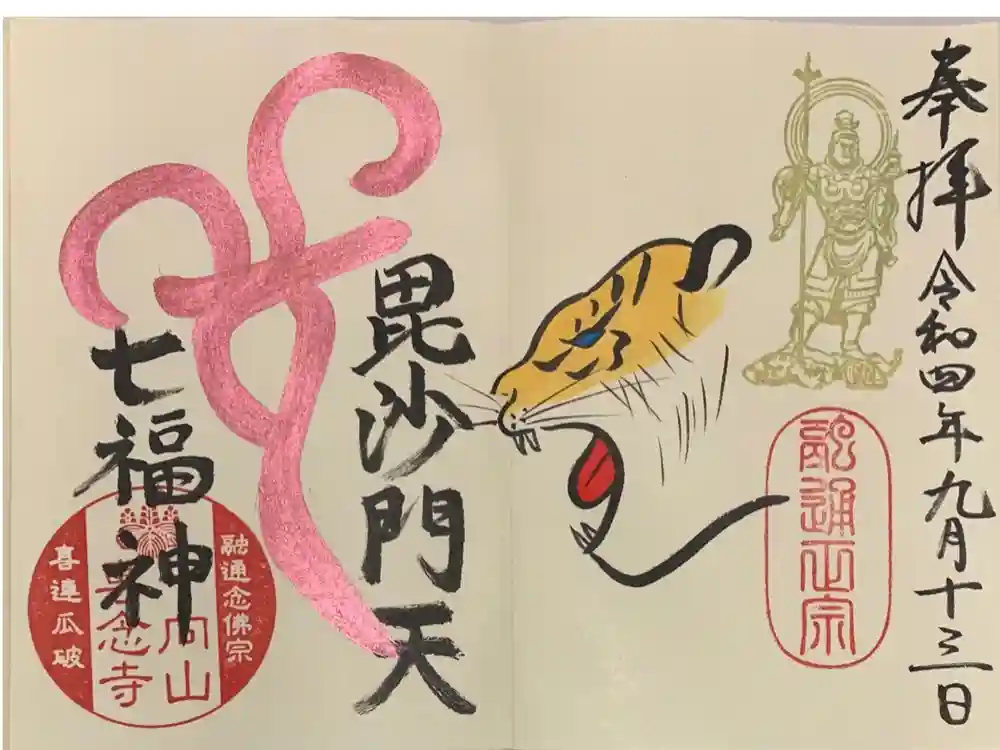 奉拝 令和四年九月十三日
融通正宗
毘沙門天
七福神
融通念佛宗
山
念寺
喜連瓜破